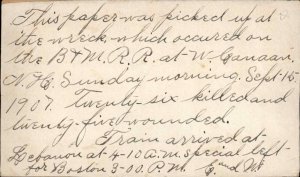 This paper was picked up at
the wreck which occured on
the B&M. R.R. at W. Canaan,
N.H. Sunday morning, Sept-15-
1907. Twenty-six killed and
twenty-five wounded.
Train arrived at
Lebanon at 4-10 A.M. Special left
for Boston 3-00 P.M.